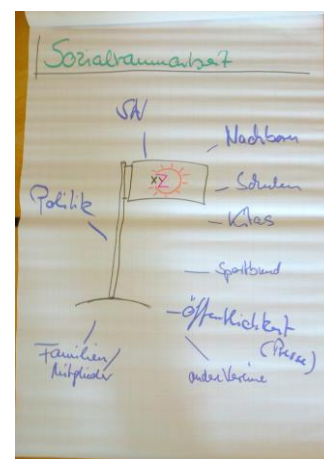 Sozialraumarbeit
SW
Nachbarn
Schulen
Kitas
Politik
XYZ
Sportbund
Öffentlichkeit
(Presse)
Familien/
Mitglieder
andere Vereine